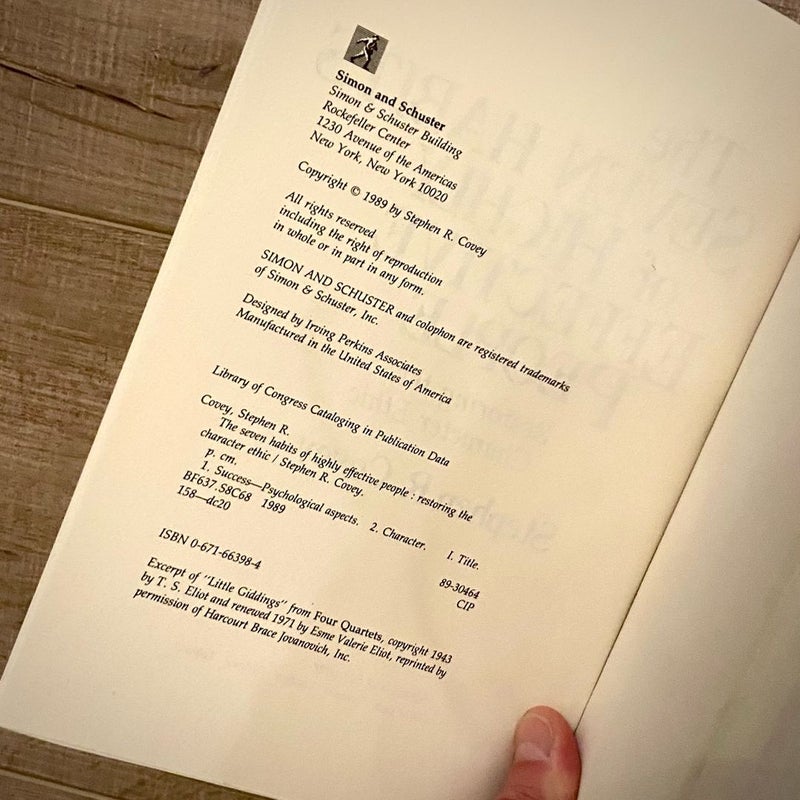 Simon and Schuster
Simon & Schuster Building
Rockefeller Center
1230 Avenue of the Americas
New York, New York 10020
Copyright © 1989 by Stephen R. Covey
All rights reserved
including the right of reproduction
in whole or in part in any form.
SIMON AND SCHUSTER and colophon are registered trademarks
of Simon & Schuster, Inc.
Designed by Irving Perkins Associates
Manufactured in the United States of America
Library of Congress Cataloging in Publication Data
Covey, Stephen R.
The seven habits of highly effective people : restoring the
character ethic / Stephen R. Covey.
p. cm.
1. Success—Psychological aspects. 2. Character. I. Title.
BF637.S8C68 1989
158—dc20
89-30464
CIP
ISBN 0-671-66398-4
Excerpt of "Little Giddings" from Four Quartets, copyright 1943
by T. S. Eliot and renewed 1971 by Esme Valerie Eliot, reprinted by
permission of Harcourt Brace Jovanovich, Inc.